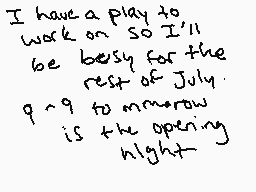 I have a play to
work on so I'll
be busy for the
rest of July.
to mmarow
is the opening
night